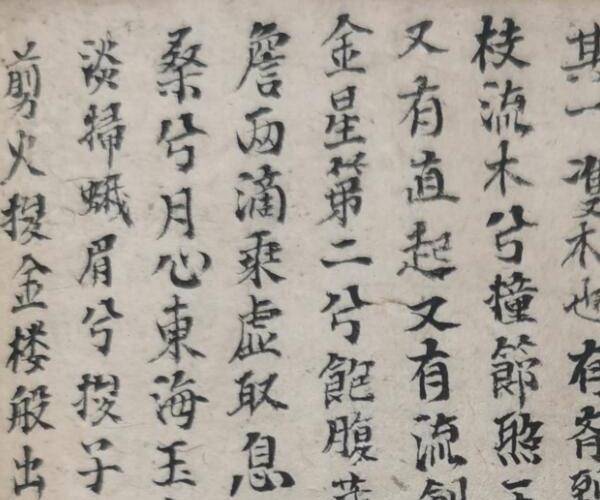 其一木也有
枝流木兮撞節照
又有直起又有流
金星第二兮飽腹
詹雨滴乗虚取息
桑兮月心東海玉
淡掃蛾眉兮子
剪火金楼般出